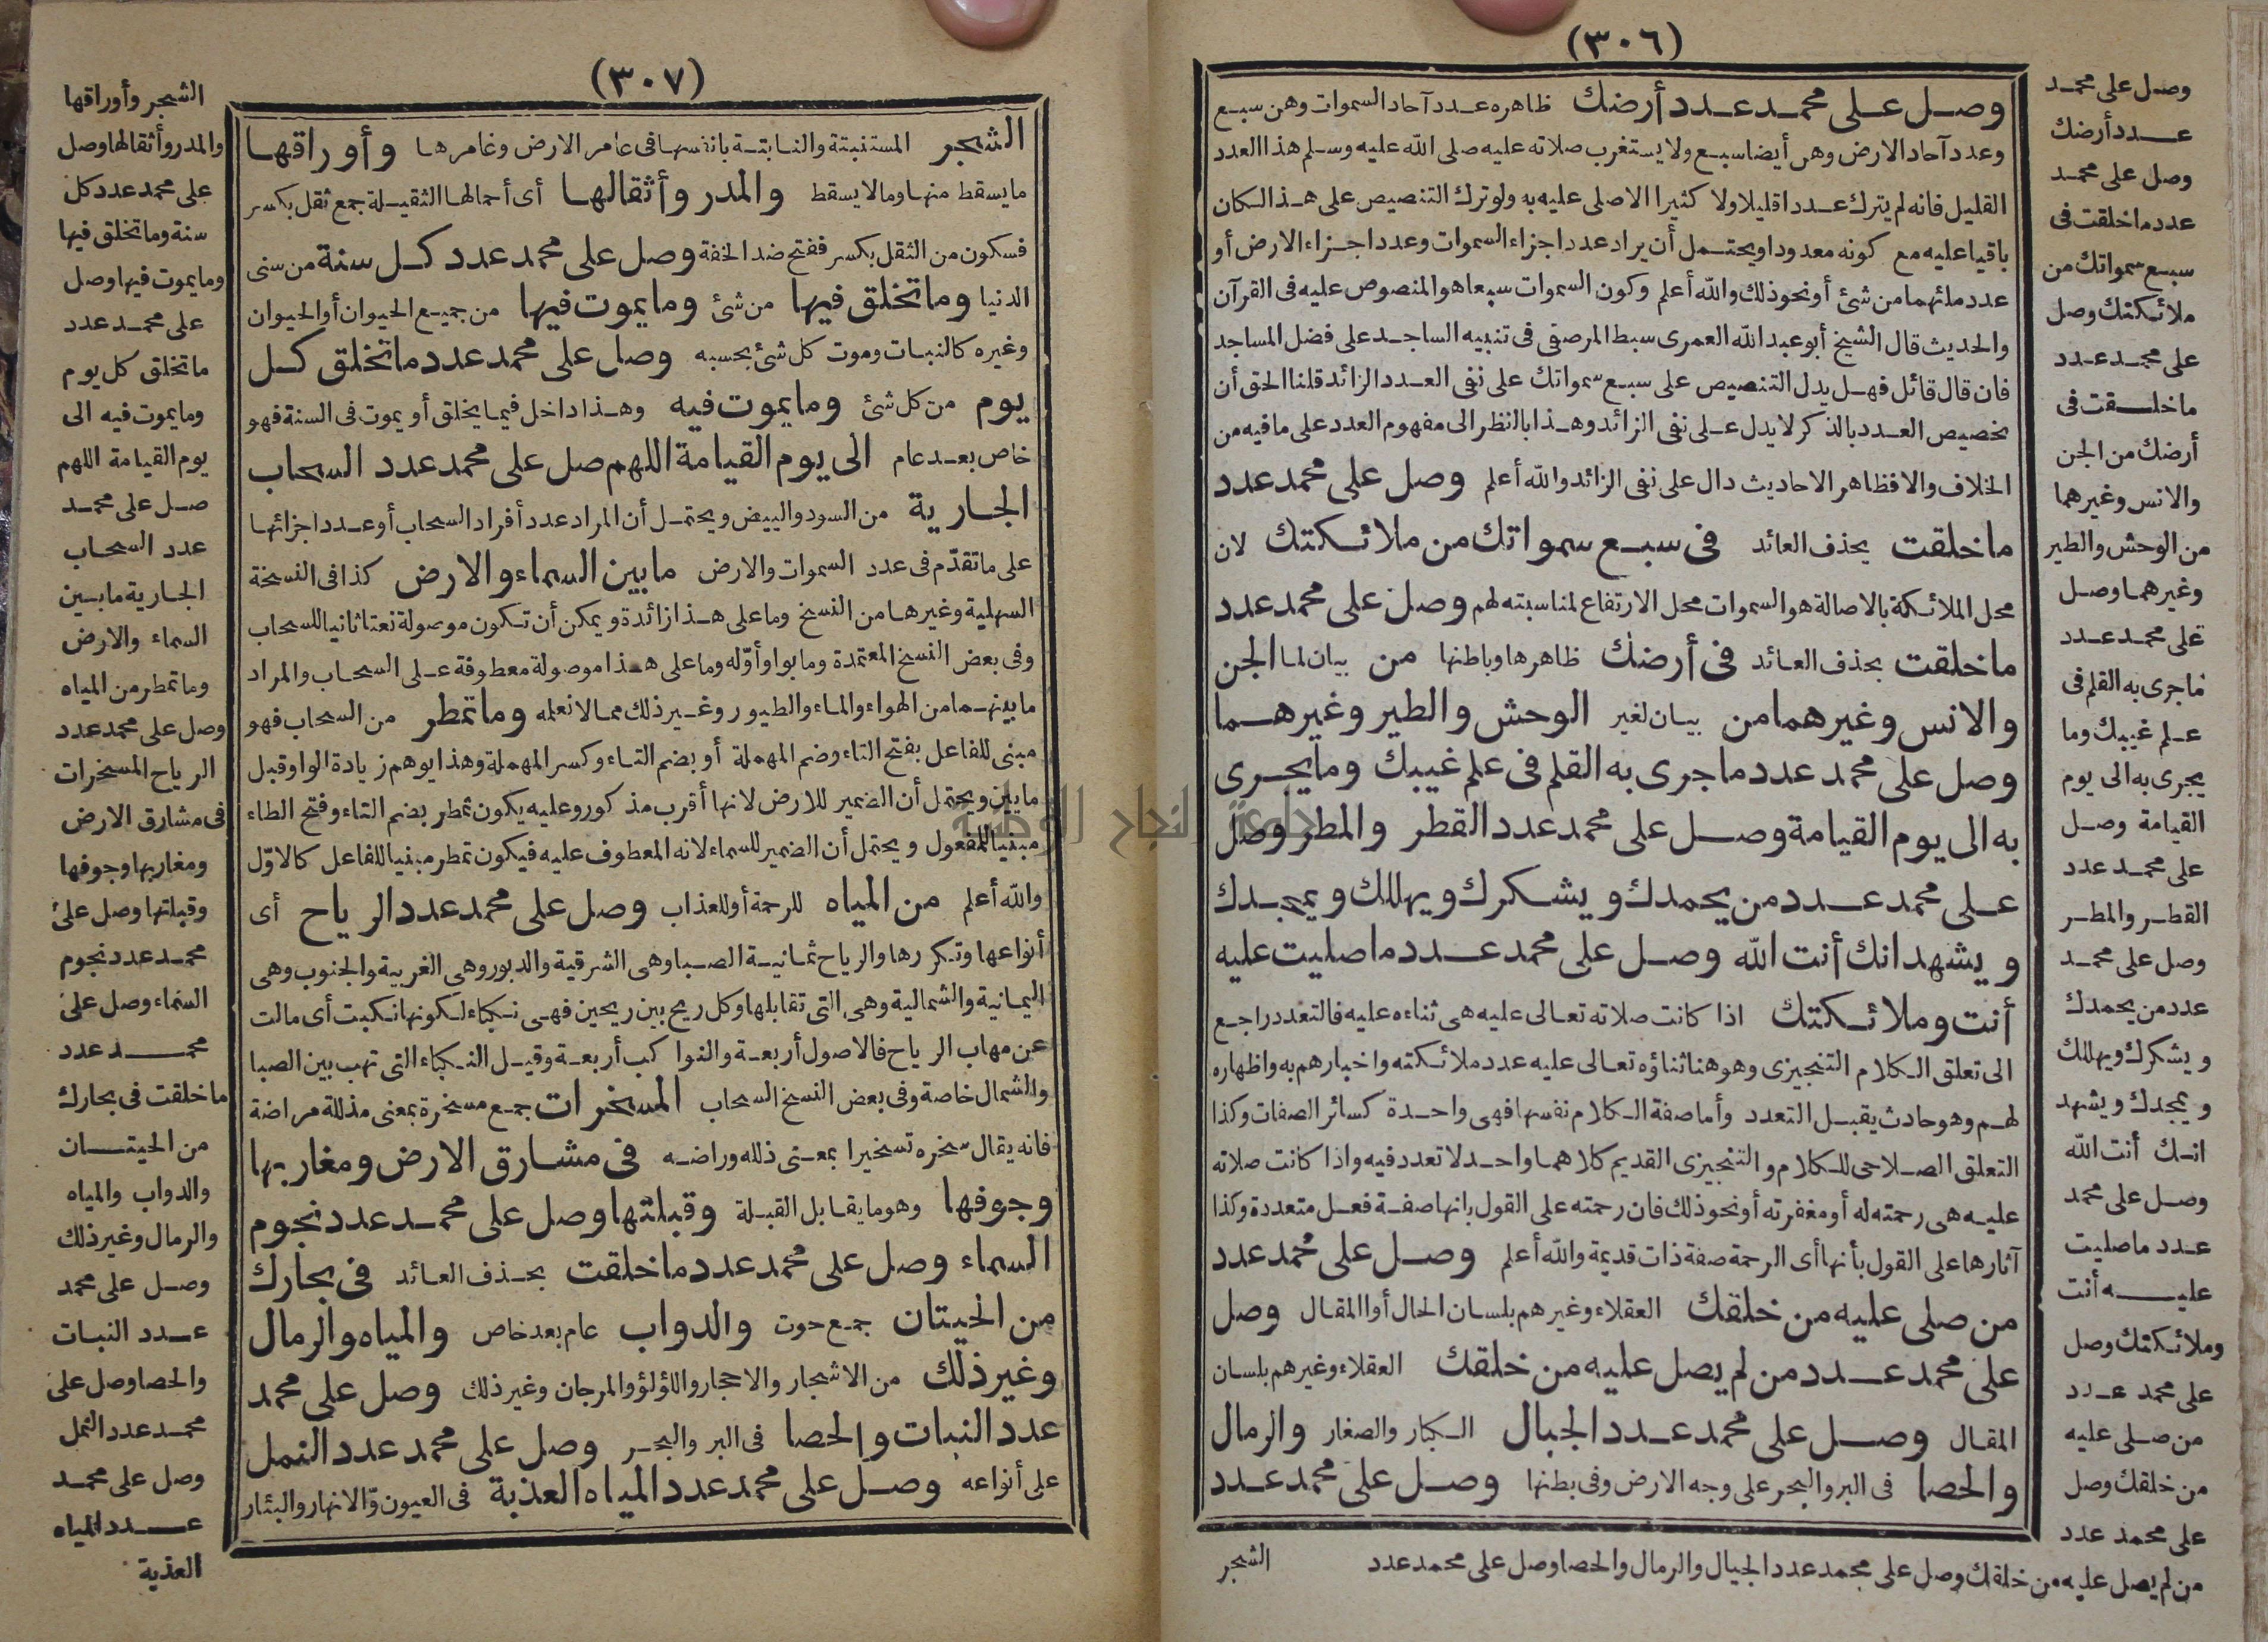 (٣٠٦)
وصل على محمد عدد أرضك ظاهره عدد آحاد السموات وهن سبع
وعدد آحاد الارض وهن أيضا سبع ولا يستغرب صلاته عليه صلى الله عليه وسلم هذا العدد
القليل فانه لم يترك عددا قليلا ولا كثيرا الا صلى عليه به ولو ترك التنصيص على هذا لكان
باقيا عليه مع كونه معدودا ويحتمل أن يراد عدد اجزاء السموات وعدد اجزاء الارض أو
عدد ملئهما من شئ أو نحو ذلك والله أعلم وكون السموات سبعا هو المنصوص عليه فى القرآن
والحديث قال الشيخ أبو عبد الله العمرى سبط المرصفى فى تنبيه الساجد على فضل المساجد
فان قال قائل فهل يدل التنصيص على سبع سمواتك على نفى العدد الزائد قلنا الحق أن
تخصيص العدد بالذكر لا يدل على نفى الزائد وهذا بالنظر الى مفهوم العدد على ما فيه من
الخلاف والا فظاهر الاحاديث دال على نفى الزائد والله أعلم وصل على محمد عدد
ما خلقت بحذف العائد فى سبع سمواتك من ملائكتك لان
محل الملائكة بالاصالة هو السموات محل الارتفاع لمناسبته لهم وصل على محمد عدد
ما خلقت بحذف العائد فى أرضك ظاهرها وباطنها من بيان لما الجن
والانس وغيرهما من بيان لغير الوحش والطير وغيرهما
وصل على محمد عدد ما جرى به القلم فى علم غيبك وما يجرى
به الى يوم القيامة وصل على محمد عدد القطر والمطر وصل
على محمد عدد من يحمدك ويشكرك ويهللك ويمجدك
ويشهد انك أنت الله وصل على محمد عدد ما صليت عليه
أنت وملائكتك اذا كانت صلاته تعالى عليه هى ثناءه عليه فالتعدد راجع
الى تعلق الكلام التنجيزى وهو هنا ثناؤه تعالى عليه عدد ملائكته واخبارهم به واظهاره
لهم وهو حادث يقبل التعدد وأما صفة الكلام نفسها فهى واحدة كسائر الصفات وكذا
التعلق الصلاحى للكلام والتنجيزى القديم كلاهما واحد لا تعدد فيه واذا كانت صلاته
عليه هى رحمته له أو مغفرته أو نحو ذلك فان رحمته على القول بانها صفة فعل متعددة وكذا
آثارها على القول بأنها أى الرحمة صفة ذات قديمة والله أعلم وصل على محمد عدد
من صلى عليه من خلقك العقلاء وغيرهم بلسان الحال أو المقال وصل
على محمد عدد من لم يصل عليه من خلقك العقلاء وغيرهم بلسان
المقال وصل على محمد عدد الجبال الكبار والصغار والرمال
والحصا فى البر والبحر على وجه الارض وفى بطنها وصل على محمد عدد
الشجر
وصل على محمد
عدد أرضك
وصل على محمد
عدد ما خلقت فى
سبع سمواتك من
ملائكتك وصل
على محمد عدد
ما خلقت فى
أرضك من الجن
والانس وغيرهما
من الوحش والطير
وغيرهما وصل
على محمد عدد
ما جرى به القلم فى
علم غيبك وما
يجرى به الى يوم
القيامة وصل
على محمد عدد
القطر والمطر
وصل على محمد
عدد من يحمدك
ويشكرك ويهللك
ويمجدك ويشهد
انك أنت الله
وصل على محمد
عدد ما صليت
عليه أنت
وملائكتك وصل
على محمد عدد
من صلى عليه
من خلقك وصل
على محمد عدد
من لم يصل عليه من خلقك وصل على محمد عدد الجبال والرمال والحصا وصل على محمد عدد
(٣٠٧)
الشجر المستنبتة والنابتة بانفسها فى عامر الارض وغامرها وأوراقها
ما يسقط منها وما لا يسقط والمدر وأثقالها أى أحمالها الثقيلة جمع ثقل بكسر
فسكون من الثقل بكسر ففتح ضد الخفة وصل على محمد عدد كل سنة من سنى
الدنيا وما تخلق فيها من شئ وما يموت فيها من جميع الحيوان أو الحيوان
وغيره كالنبات وموت كل شئ بحسبه وصل على محمد عدد ما تخلق كل
يوم من كل شئ وما يموت فيه وهذا داخل فيما يخلق أو يموت فى السنة فهو
خاص بعد عام الى يوم القيامة اللهم صل على محمد عدد السحاب
الجارية من السود والبيض ويحتمل أن المراد عدد أفراد السحاب أو عدد اجزائها
على ما تقدّم فى عدد السموات والارض ما بين السماء والارض كذا فى النسخة
السهلية وغيرها من النسخ وما على هذا زائدة ويمكن أن تكون موصولة نعتا ثانيا للسحاب
وفى بعض النسخ المعتمدة وما بواو أوّله وما على هذا موصولة معطوفة على السحاب والمراد
ما بينهما من الهواء والماء والطيور وغير ذلك مما لا نعلمه وما تمطر من السحاب فهو
مبنى للفاعل بفتح التاء وضم المهملة أو بضم التاء وكسر المهملة وهذا يوهم زيادة الواو قبل
ما بين ويحتمل أن الضمير للارض لانها أقرب مذكور وعليه يكون تمطر بضم التاء وفتح الطاء
مبنيا للمفعول ويحتمل أن الضمير للسماء لانه المعطوف عليه فيكون تمطر مبنيا للفاعل كالاوّل
والله أعلم من المياه للرحمة أو للعذاب وصل على محمد عدد الرياح أى
أنواعها وتكررها والرياح ثمانية الصبا وهى الشرقية والدبور وهى الغربية والجنوب وهى
اليمانية والشمالية وهى التى تقابلها وكل ريح بين ريحين فهى نكباء لكونها نكبت أى مالت
عن مهاب الرياح فالاصول أربعة والنواكب أربعة وقيل النكباء التى تهب بين الصبا
والشمال خاصة وفى بعض النسخ السحاب المسخرات جمع مسخرة بمعنى مذللة مراضة
فانه يقال سخره تسخيرا بمعنى ذلله وراضه فى مشارق الارض ومغاربها
وجوفها وهو ما يقابل القبلة وقبلتها وصل على محمد عدد نجوم
السماء وصل على محمد عدد ما خلقت بحذف العائد فى بحارك
من الحيتان جمع حوت والدواب عام بعد خاص والمياه والرمال
وغير ذلك من الاشجار والاحجار واللؤلؤ والمرجان وغير ذلك وصل على محمد
عدد النبات والحصا فى البر والبحر وصل على محمد عدد النمل
على أنواعه وصل على محمد عدد المياه العذبة فى العيون والانهار والبئار
الشجر وأوراقها
والمدر وأثقالها وصل
على محمد عدد كل
سنة وما تخلق فيها
وما يموت فيها وصل
على محمد عدد
ما تخلق كل يوم
وما يموت فيه الى
يوم القيامة اللهم
صل على محمد
عدد السحاب
الجارية ما بين
السماء والارض
وما تمطر من المياه
وصل على محمد عدد
الرياح المسخرات
فى مشارق الارض
ومغاربها وجوفها
وقبلتها وصل على
محمد عدد نجوم
السماء وصل على
محمد عدد
ما خلقت فى بحارك
من الحيتان
والدواب والمياه
والرمال وغير ذلك
وصل على محمد
عدد النبات
والحصا وصل على
محمد عدد النمل
وصل على محمد
عدد المياه
العذبة
جامعة النجاح الوطنية